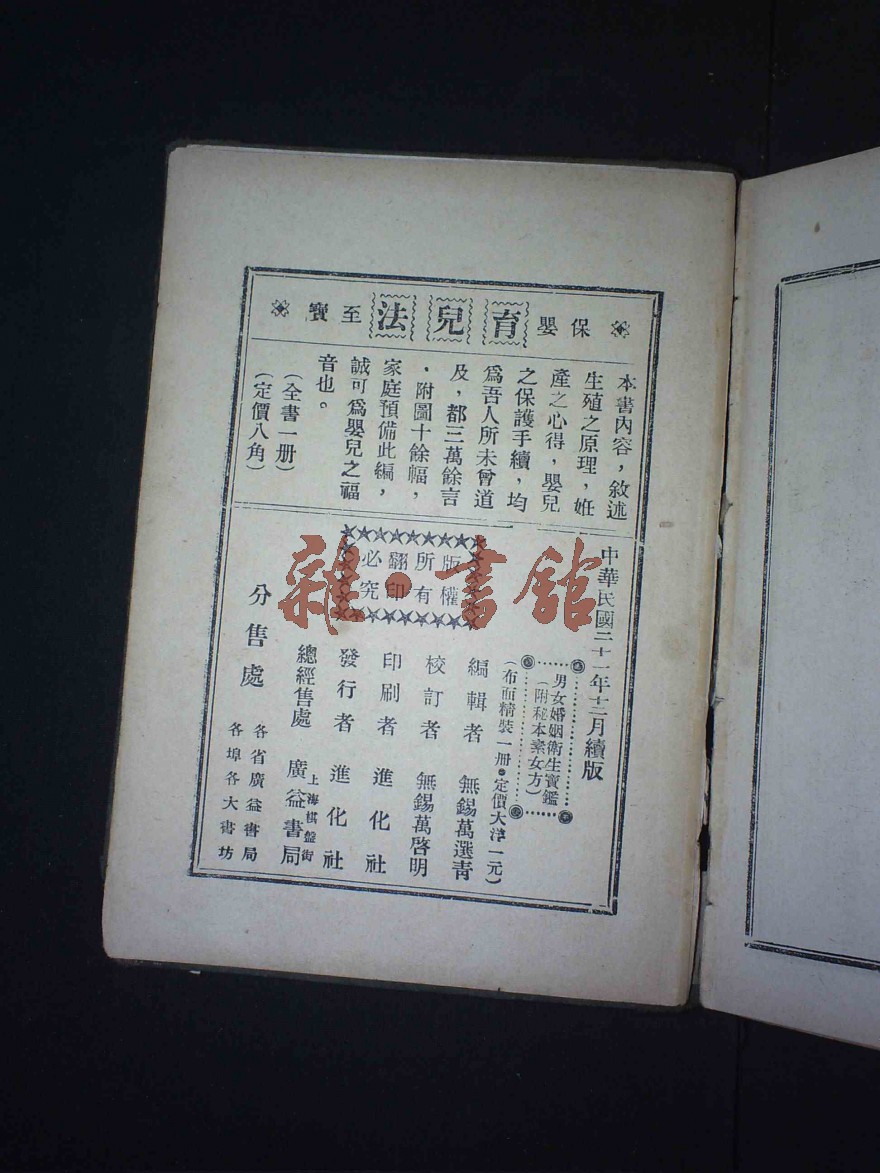 保嬰 育兒法 至寶
本書內容，敘述
生殖之原理，姙
產之心得，嬰兒
之保護手續，均
爲吾人所未曾道
及，都三萬餘言
．附圖十餘幅，
家庭預備此編，
誠可爲嬰兒之福
音也。
（全書一册）
（定價八角）
中華民國二十一年十二月續版
男女婚姻衛生寶鑑
（附秘本素女方）
（布面精裝一册●定價大洋一元）
版權
所有
翻印
必究
編輯者 無錫萬選青
校訂者 無錫萬啓明
印刷者 進化社
發行者 進化社
總經售處 上海棋盤街 廣益書局
分售處 各省廣益書局
各埠各大書坊
雜·書館